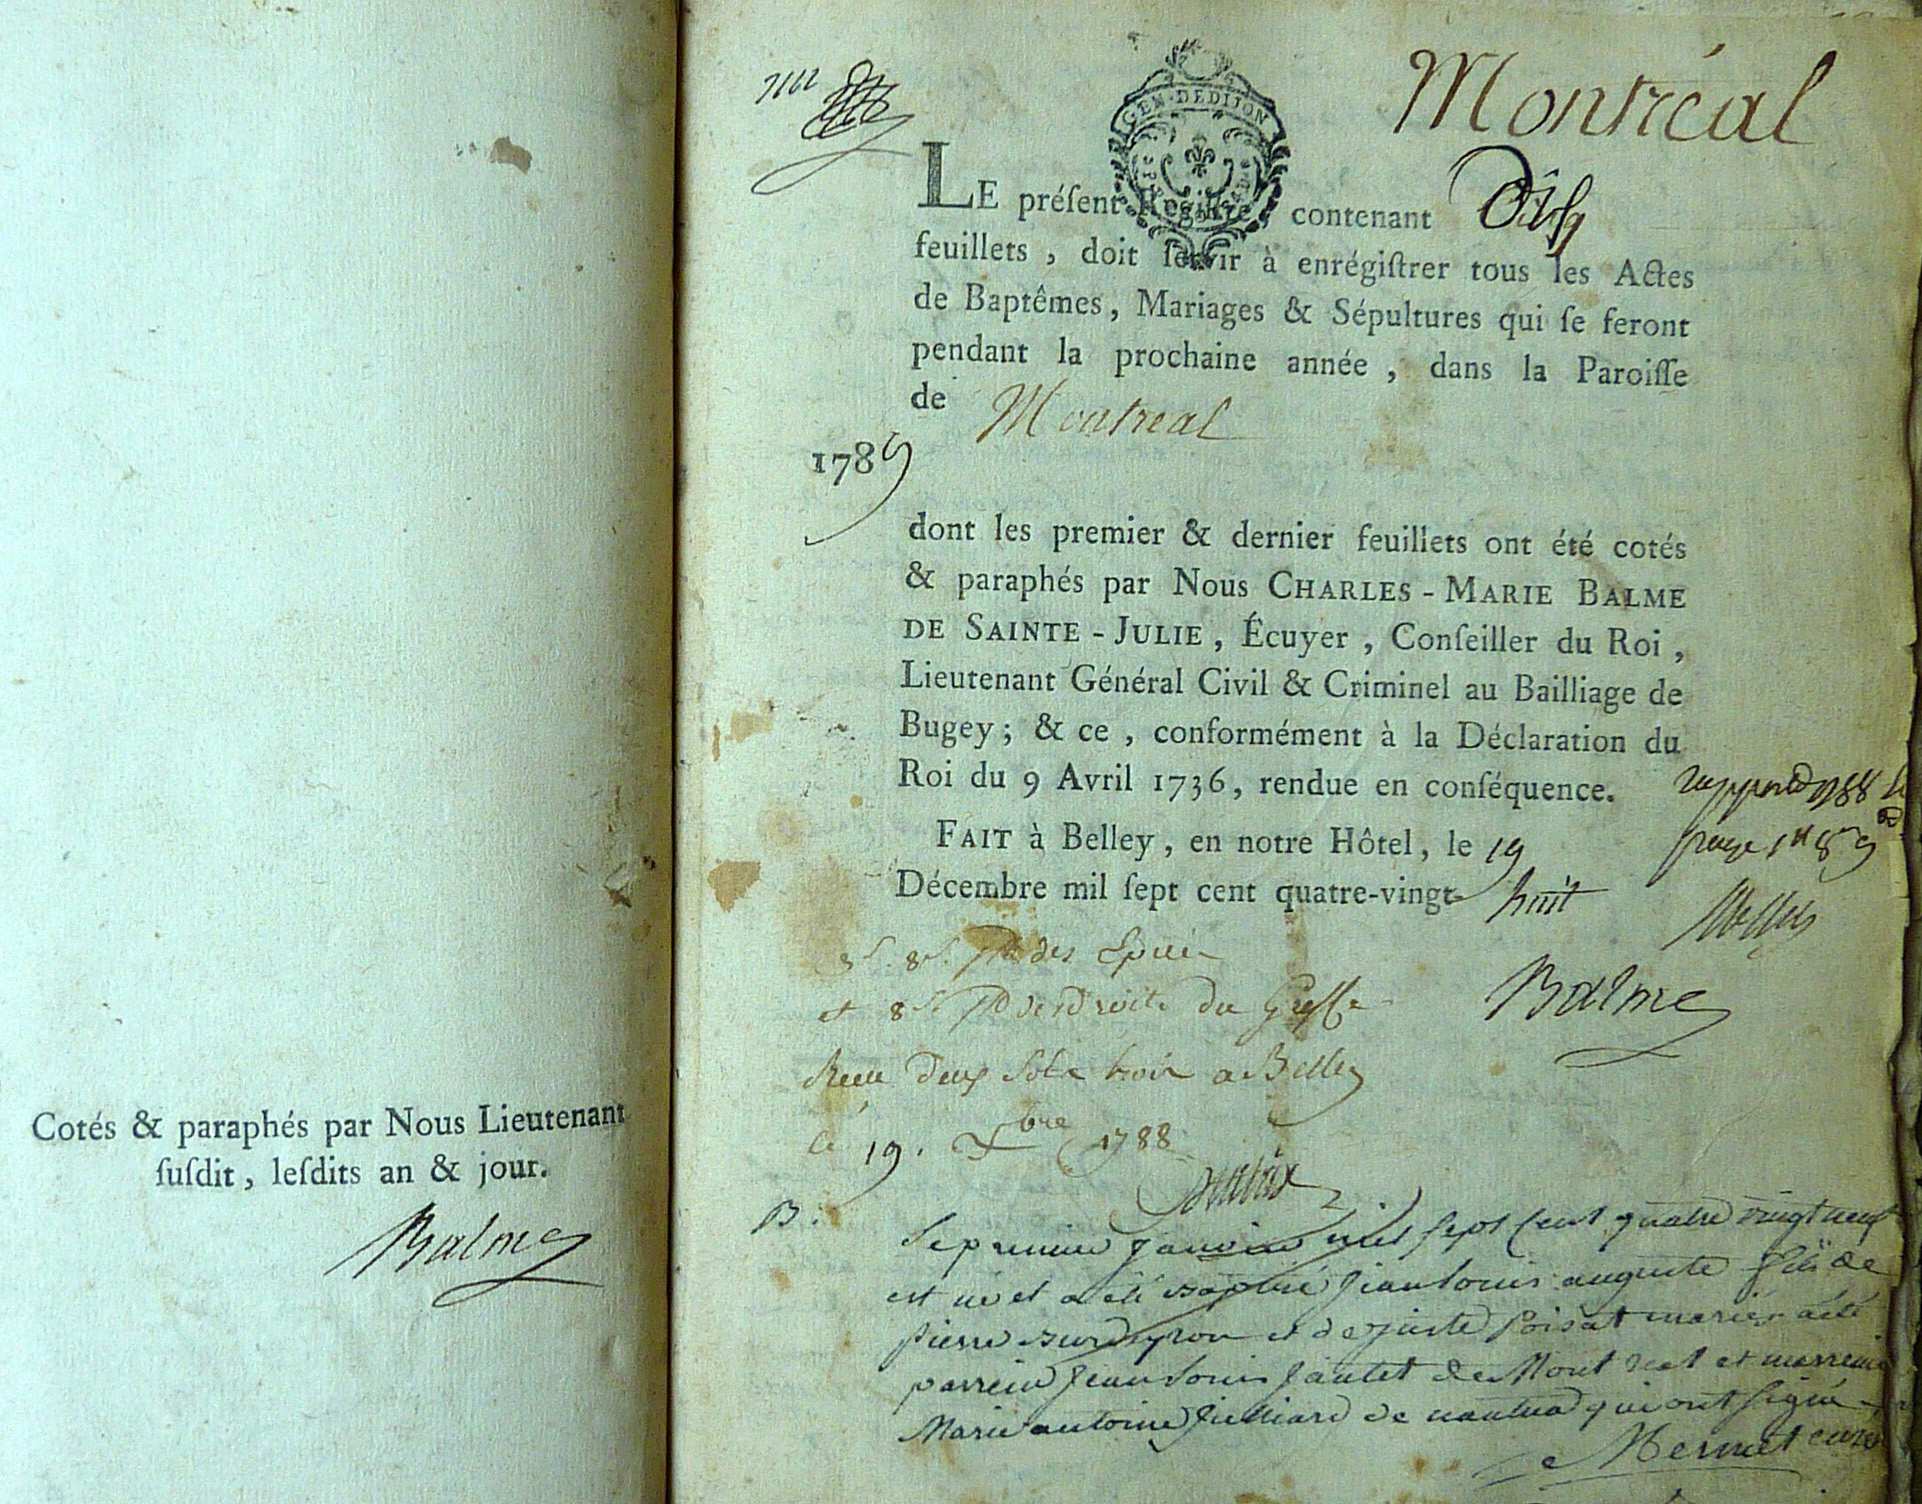 Cotés & paraphés par Nous Lieutenant
ſuſdit, leſdits an & jour.
Balme
Montréal
GEN·DE DIJON
LE préſent Regiſtre, contenant Dix
feuillets, doit ſervir à enrégiſtrer tous les Actes
de Baptêmes, Mariages & Sépultures qui ſe feront
pendant la prochaine année, dans la Paroiſſe
de Montreal
1789
dont les premier & dernier feuillets ont été cotés
& paraphés par Nous CHARLES-MARIE BALME
DE SAINTE-JULIE, Écuyer, Conſeiller du Roi,
Lieutenant Général Civil & Criminel au Bailliage de
Bugey; & ce, conformément à la Déclaration du
Roi du 9 Avril 1736, rendue en conſéquence.
FAIT à Belley, en notre Hôtel, le 19
Décembre mil ſept cent quatre-vingt-huit
Balme
et 8 droits du Greffe
Receu deux sols trois a Belley
le 19. Xbre 1788
B.
Le premier janvier mil sept cent quatre vingt neuf
est né et a été baptisé jean louis auguste fils de
pierre et de juste poisat mariés a été
parrein jean louis jantet de Montreal et marreine
Marie antoine de nantua qui ont signé
Mermet curé